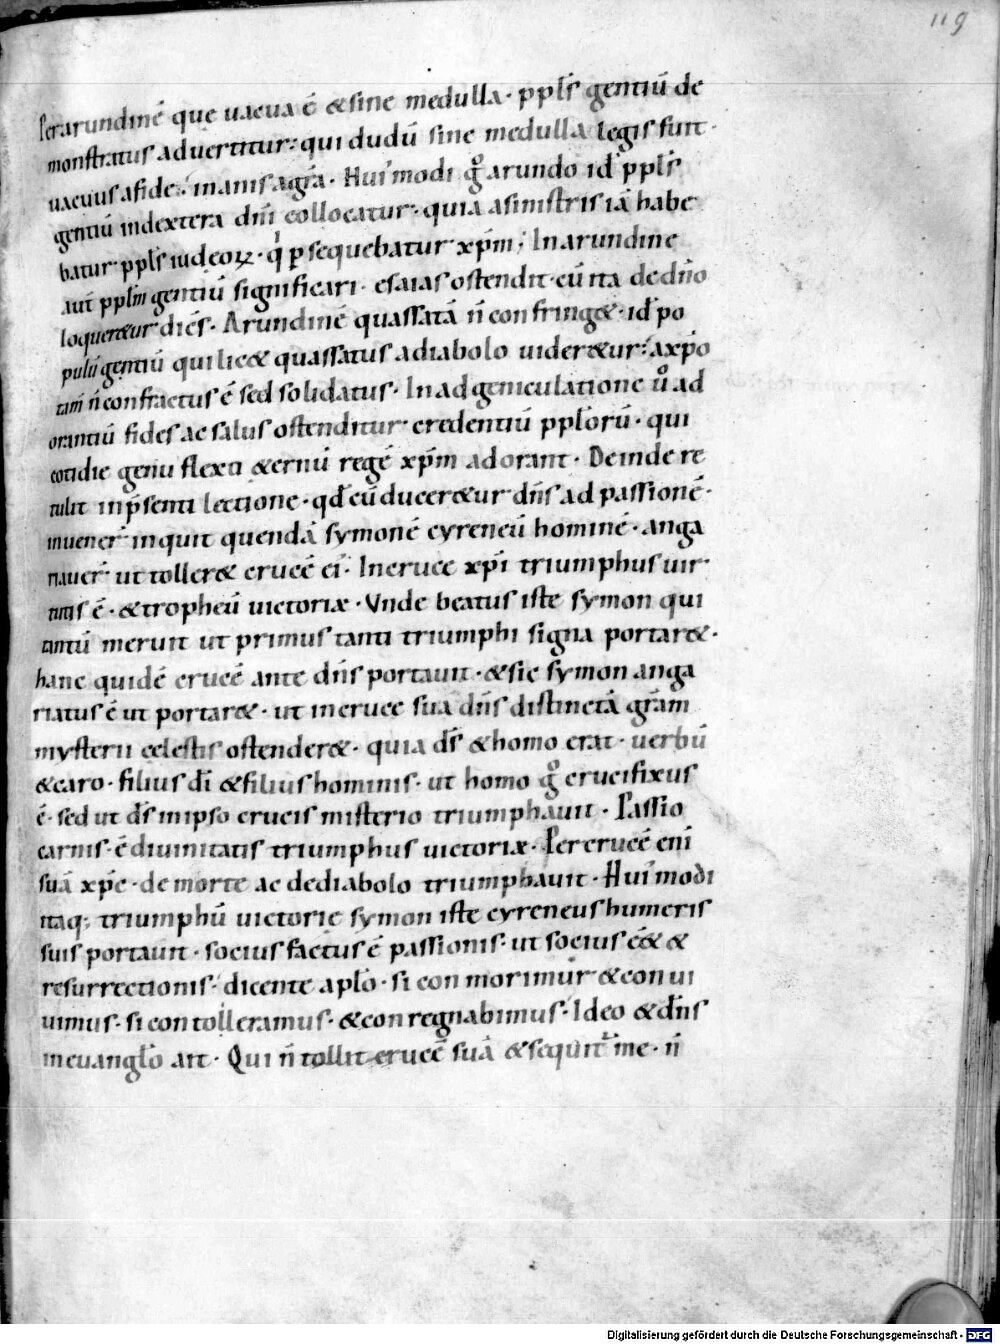 119
Per arundinē que uacua ē & sine medulla · ppl's gentiū de
monstratus aduertitur: qui dudū sine medulla legis fuit ·
uacuus a fide: inanis a gr̄a · Hui'modi g° arundo id' ppl's
gentiū in dextera dn̄i collocatur · quia a sinistris iā habe
batur ppl's iudeoꝝ · q' ꝑsequebatur xp̄m; In arundine
aut' pplm̄ gentiū significari · esaias ostendit · cū ita de dn̄o
loquer&ur diēs · Arundinē quassatā n̄ confring& · id' po
pulū gentiū qui lic& quassatus a diabolo uider&ur: a xp̄o
tam̄ n̄ confractus ē sed solidatus · In adgeniculatione u° ad
orantiū fides ac salus ostenditur credentiū ppl'orū · qui
cotidie genu flexo &ernū regē xp̄m adorant · Deinde re
tulit in p̄senti lectione · qd' cū ducer&ur dn̄s ad passionē ·
inuener' inquit quendā symonē cyreneū hominē · anga
riauer' ut toller& crucē ei' · In cruce xp̄i triumphus uir
tutis ē · & tropheū uictoriæ · Vnde beatus iste symon qui
tantū meruit ut primus tanti triumphi signa portar& ·
hanc quidē crucē ante dn̄s portauit · & sic symon anga
riatus ē ut portar& · ut in cruce sua dn̄s distinctā gr̄am
mysterii celestis ostender& · quia d's & homo erat · uerbū
& caro · filius di' & filius hominis · ut homo g° crucifixus
ē · sed ut d's in ipso crucis misterio triumphauit · Passio
carnis · ē diuinitatis triumphus uictoriæ · Per crucē eni'
suā xp̄c · de morte ac de diabolo triumphauit · Hui'modi
itaq; triumphū uictorie symon iste cyreneus humeris
suis portauit · socius factus ē passionis · ut socius eē& &
resurrectionis · dicente apl'o · si conmorimur & conui
uimus · si contolleramus · & conregnabimus · Ideo & dn̄s
in euangl'o ait · Qui n̄ tollit crucē suā & sequit' me · n̄
Digitalisierung gefördert durch die Deutsche Forschungsgemeinschaft - DFG